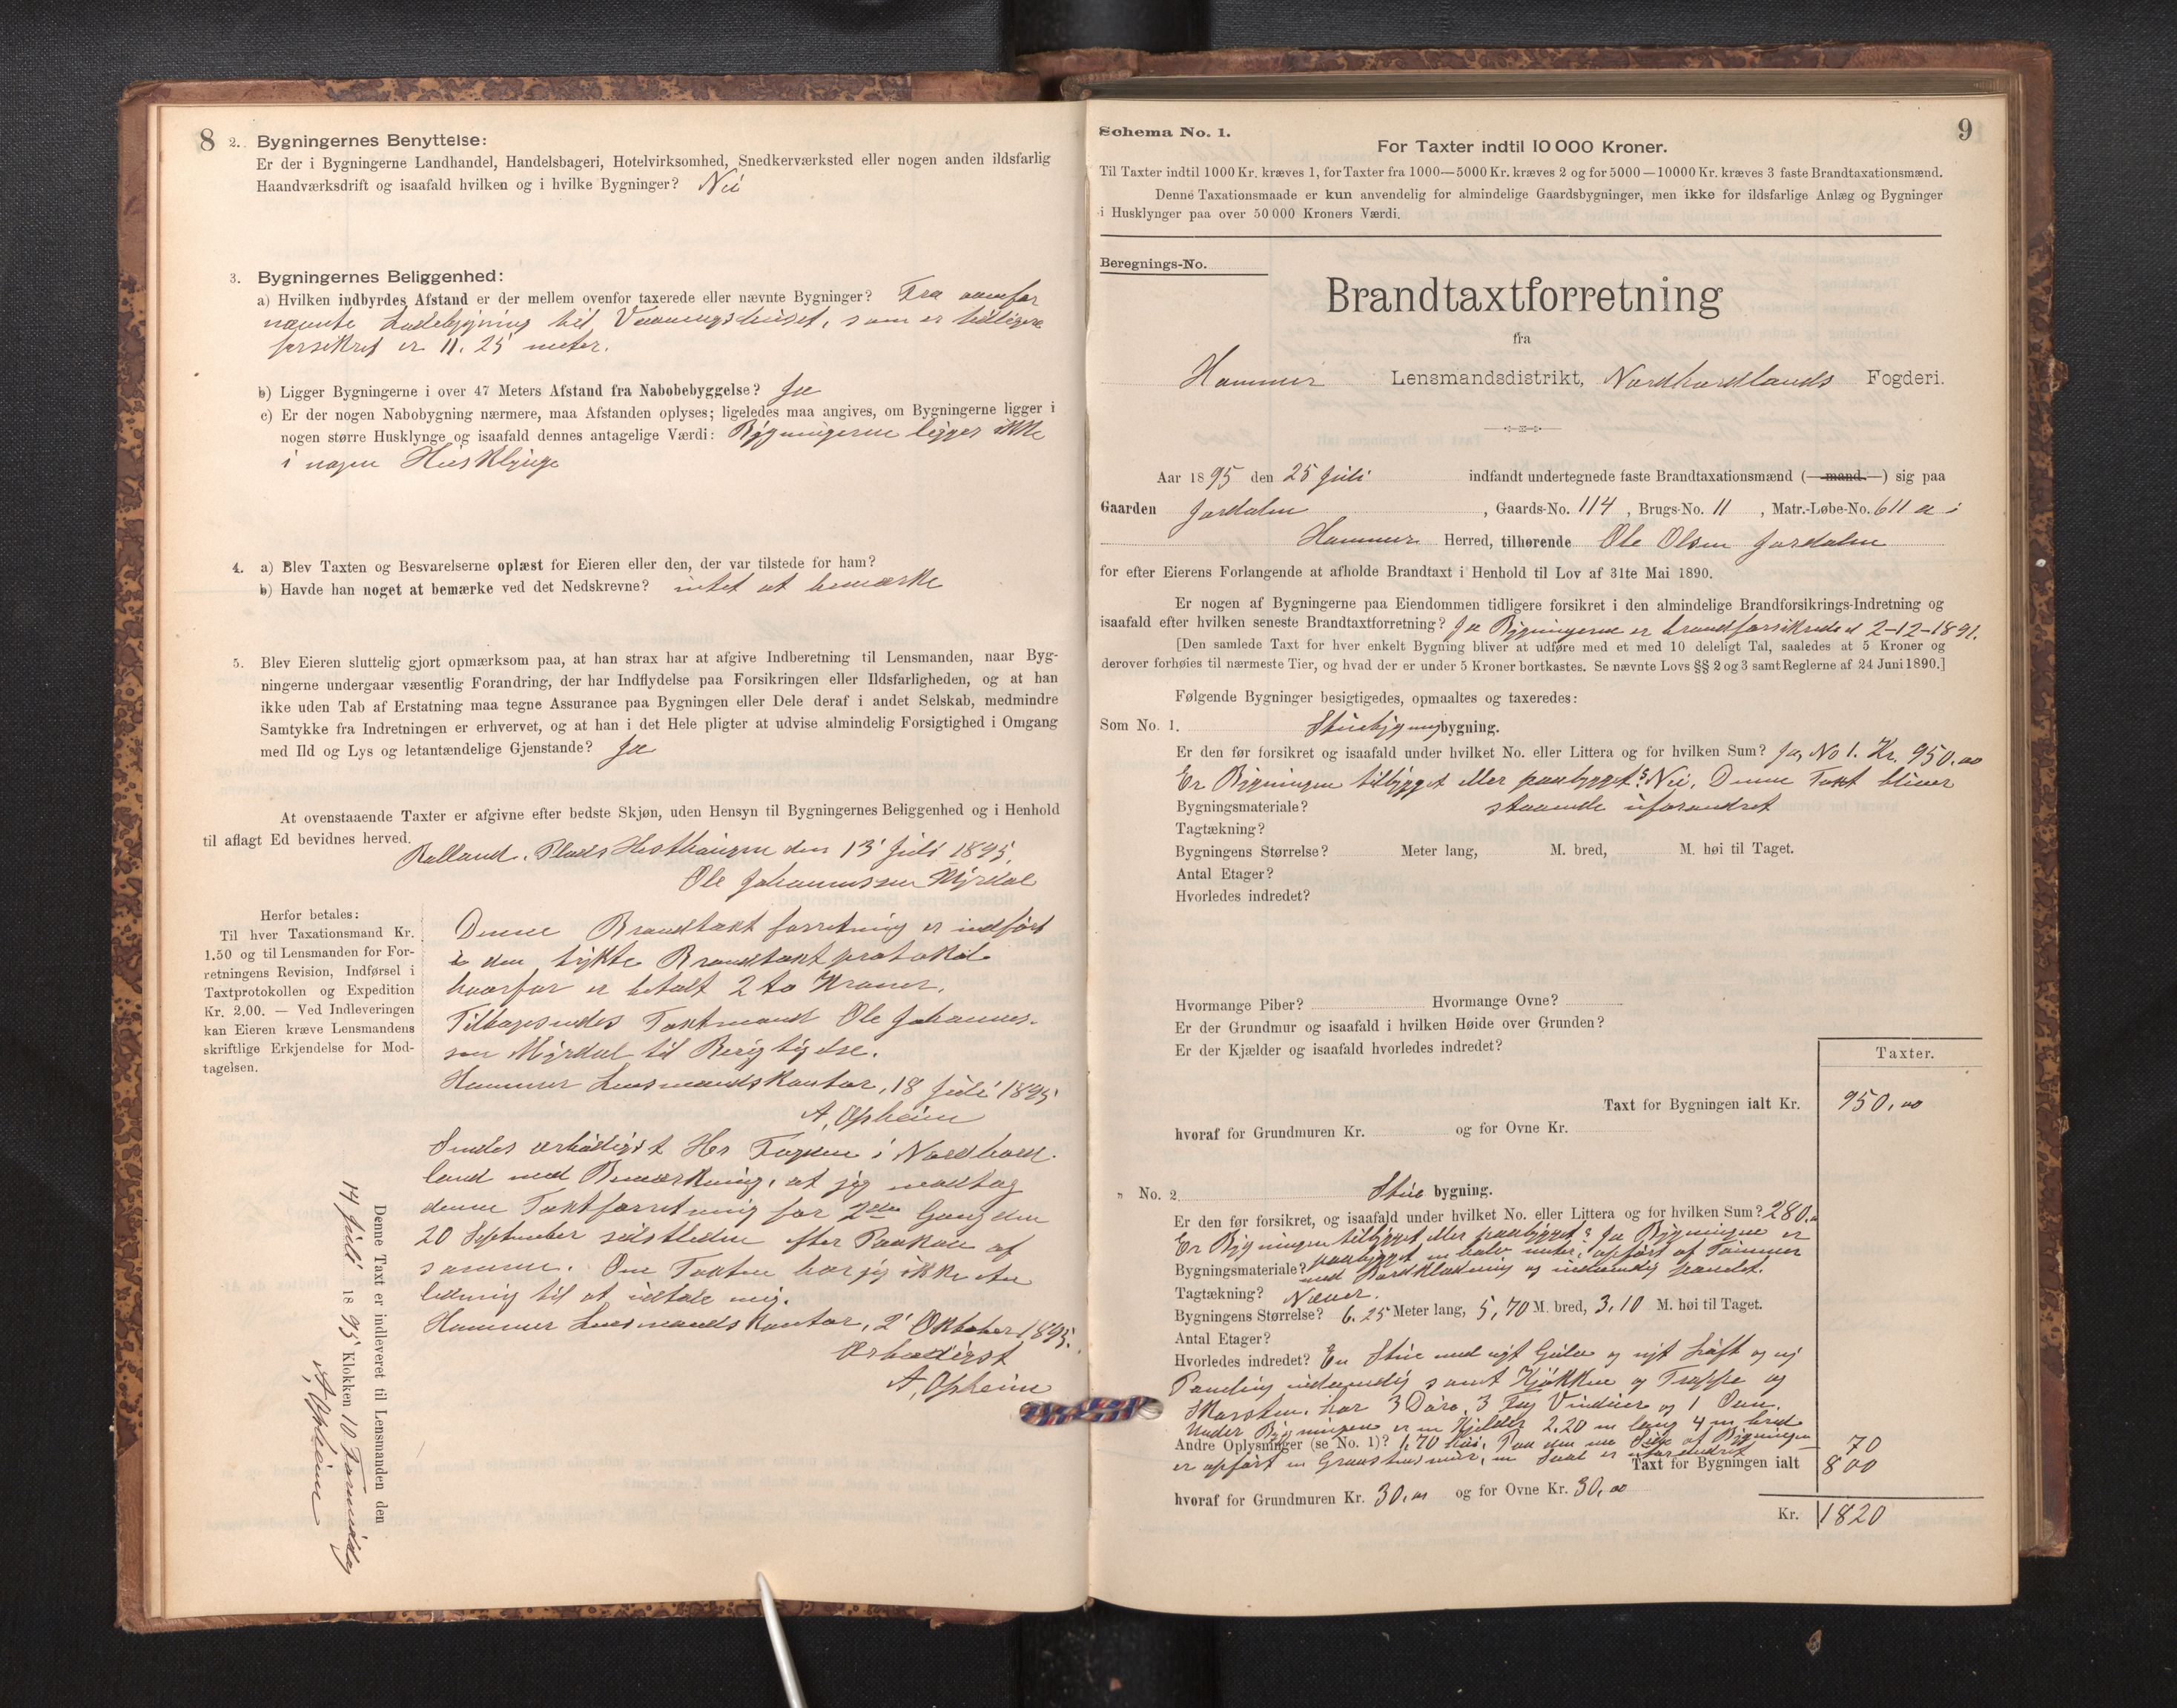 8
2. Bygningernes Benyttelse:
Er der i Bygningerne Landhandel, Handelsbageri, Hotelvirksomhed, Snedkerværksted eller nogen anden ildsfarlig
Haandværksdrift og isaafald hvilken og i hvilke Bygninger? Nei
3. Bygningernes Beliggenhed:
a) Hvilken indbyrdes Afstand er der mellem ovenfor taxerede eller nævnte Bygninger? Fra ovenfor
nævnte Ladebygning til Vaaningshuset, som er tidligere
forsikret er 11.25 meter.
b) Ligger Bygningerne i over 47 Meters Afstand fra Nabobebyggelse? Ja
c) Er der nogen Nabobygning nærmere, maa Afstanden oplyses; ligeledes maa angives, om Bygningerne ligger i
nogen større Husklynge og isaafald dennes antagelige Værdi: Bygningerne ligger ikke
i nogen Husklynge
4. a) Blev Taxten og Besvarelserne oplæst for Eieren eller den, der var tilstede for ham?
b) Havde han noget at bemærke ved det Nedskrevne? intet at bemærke
5. Blev Eieren sluttelig gjort opmærksom paa, at han strax har at afgive Indberetning til Lensmanden, naar Byg-
ningerne undergaar væsentlig Forandring, der har Indflydelse paa Forsikringen eller Ildsfarligheden, og at han
ikke uden Tab af Erstatning maa tegne Assurance paa Bygningen eller Dele deraf i andet Selskab, medmindre
Samtykke fra Indretningen er erhvervet, og at han i det Hele pligter at udvise almindelig Forsigtighed i Omgang
med Ild og Lys og letantændelige Gjenstande? Ja
At ovenstaaende Taxter er afgivne efter bedste Skjøn, uden Hensyn til Bygningernes Beliggenhed og i Henhold
til aflagt Ed bevidnes herved.
Plads Hesthaugen den 13 Juli 1895.
Ole Johannessen Myrdal
Herfor betales:
Til hver Taxationsmand Kr.
1.50 og til Lensmanden for For-
retningens Revision, Indførsel i
Taxtprotokollen og Expedition
Kr. 2.00. — Ved Indleveringen
kan Eieren kræve Lensmandens
skriftlige Erkjendelse for Mod-
tagelsen.
Denne Brandtaxtforretning er indført
i den trykte Brandtaxtprotokol
hvorfor er betalt 2 to Kroner.
Tilbagesendes Taxtmand Ole Johannes-
sen Myrdal til Berigtigelse.
Hammer Lensmandskontor, 18 Juli 1895
A. Opheim
Sendes ærbødigst Hr Fogden i Nordhord-
land med Bemærkning, at jeg modtog
denne Taxtforretning for 2den Gang den
20 September sidstleden efter Paakrav af
samme. Om Taxten har jeg ikke An
ledning til at udtale mig.
Hammer Lensmandskontor, 2 Oktober 1895.
Ærbødigst
A. Opheim
Denne Taxt er indleveret til Lensmanden den
14 Juli 1895 Klokken 10 Formiddag
A. Opheim
9
Schema No. 1.
For Taxter indtil 10 000 Kroner.
Til Taxter indtil 1000 Kr. kræves 1, for Taxter fra 1000—5000 Kr. kræves 2 og for 5000—10000 Kr. kræves 3 faste Brandtaxationsmænd.
Denne Taxationsmaade er kun anvendelig for almindelige Gaardsbygninger, men ikke for ildsfarlige Anlæg og Bygninger
i Husklynger paa over 50 000 Kroners Værdi.
Beregnings-No.
Brandtaxtforretning
fra
Hammer Lensmandsdistrikt, Nordhordlands Fogderi.
Aar 1895 den 25 Juli indfandt undertegnede faste Brandtaxationsmænd (—mand.—) sig paa
Gaarden Jordalen, Gaards-No. 114, Brugs-No. 11, Matr.-Løbe-No. 611 a i
Hammer Herred, tilhørende Ole Olsen Jordalen
for efter Eierens Forlangende at afholde Brandtaxt i Henhold til Lov af 31te Mai 1890.
Er nogen af Bygningerne paa Eiendommen tidligere forsikret i den almindelige Brandforsikrings-Indretning og
isaafald efter hvilken seneste Brandtaxtforretning? Ja Bygningerne er brandforsikrede d 2-12-1891.
[Den samlede Taxt for hver enkelt Bygning bliver at udføre med et med 10 deleligt Tal, saaledes at 5 Kroner og
derover forhøies til nærmeste Tier, og hvad der er under 5 Kroner bortkastes. Se nævnte Lovs §§ 2 og 3 samt Reglerne af 24 Juni 1890.]
Følgende Bygninger besigtigedes, opmaaltes og taxeredes:
Som No. 1. Stuebygningbygning.
Er den før forsikret og isaafald under hvilket No. eller Littera og for hvilken Sum? Ja, No 1. Kr. 950.00
Er Bygningen tilbygget eller paabygget? Nei. Denne Taxt bliver
Bygningsmateriale? staaende uforandret
Tagtækning?
Bygningens Størrelse? Meter lang, M. bred, M. høi til Taget.
Antal Etager?
Hvorledes indredet?
Hvormange Piber? Hvormange Ovne?
Er der Grundmur og isaafald i hvilken Høide over Grunden?
Er der Kjælder og isaafald hvorledes indredet?
Taxter.
Taxt for Bygningen ialt Kr. 950.00
hvoraf for Grundmuren Kr. og for Ovne Kr.
" No. 2. Stue bygning.
Er den før forsikret, og isaafald under hvilket No. eller Littera og for hvilken Sum? 280.
Er Bygningen tilbygget eller paabygget? Ja Bygningen er
paabygget en halv meter, opført af Tømmer
Bygningsmateriale? med Bordklædning og indvendig panelet.
Tagtækning? Næver.
Bygningens Størrelse? 6.25 Meter lang, 5,70 M. bred, 3,10 M. høi til Taget.
Antal Etager?
Hvorledes indredet? En Stue med nyt Gulv og nyt Loft og ny
Paneling indvendig samt Kjøkken og Trappe og
Skorsten, har 3 Døre, 3 Fag Vinduer og 1 Ovn.
Under Bygningen er en Kjelder 2,20 m lang 4 m bred
Andre Oplysninger (se No. 1)? 1,70 høi. Paa den ene Side af Bygningen 70
er opført en Graastensmur, er uforandret
Taxt for Bygningen ialt 800
hvoraf for Grundmuren Kr. 30.00 og for Ovne Kr. 30,00
Kr. 1820